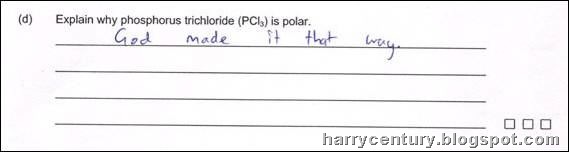 (d) Explain why phosphorus trichloride (PCl₃) is polar.
God made it that way.
harrycentury.blogspot.com